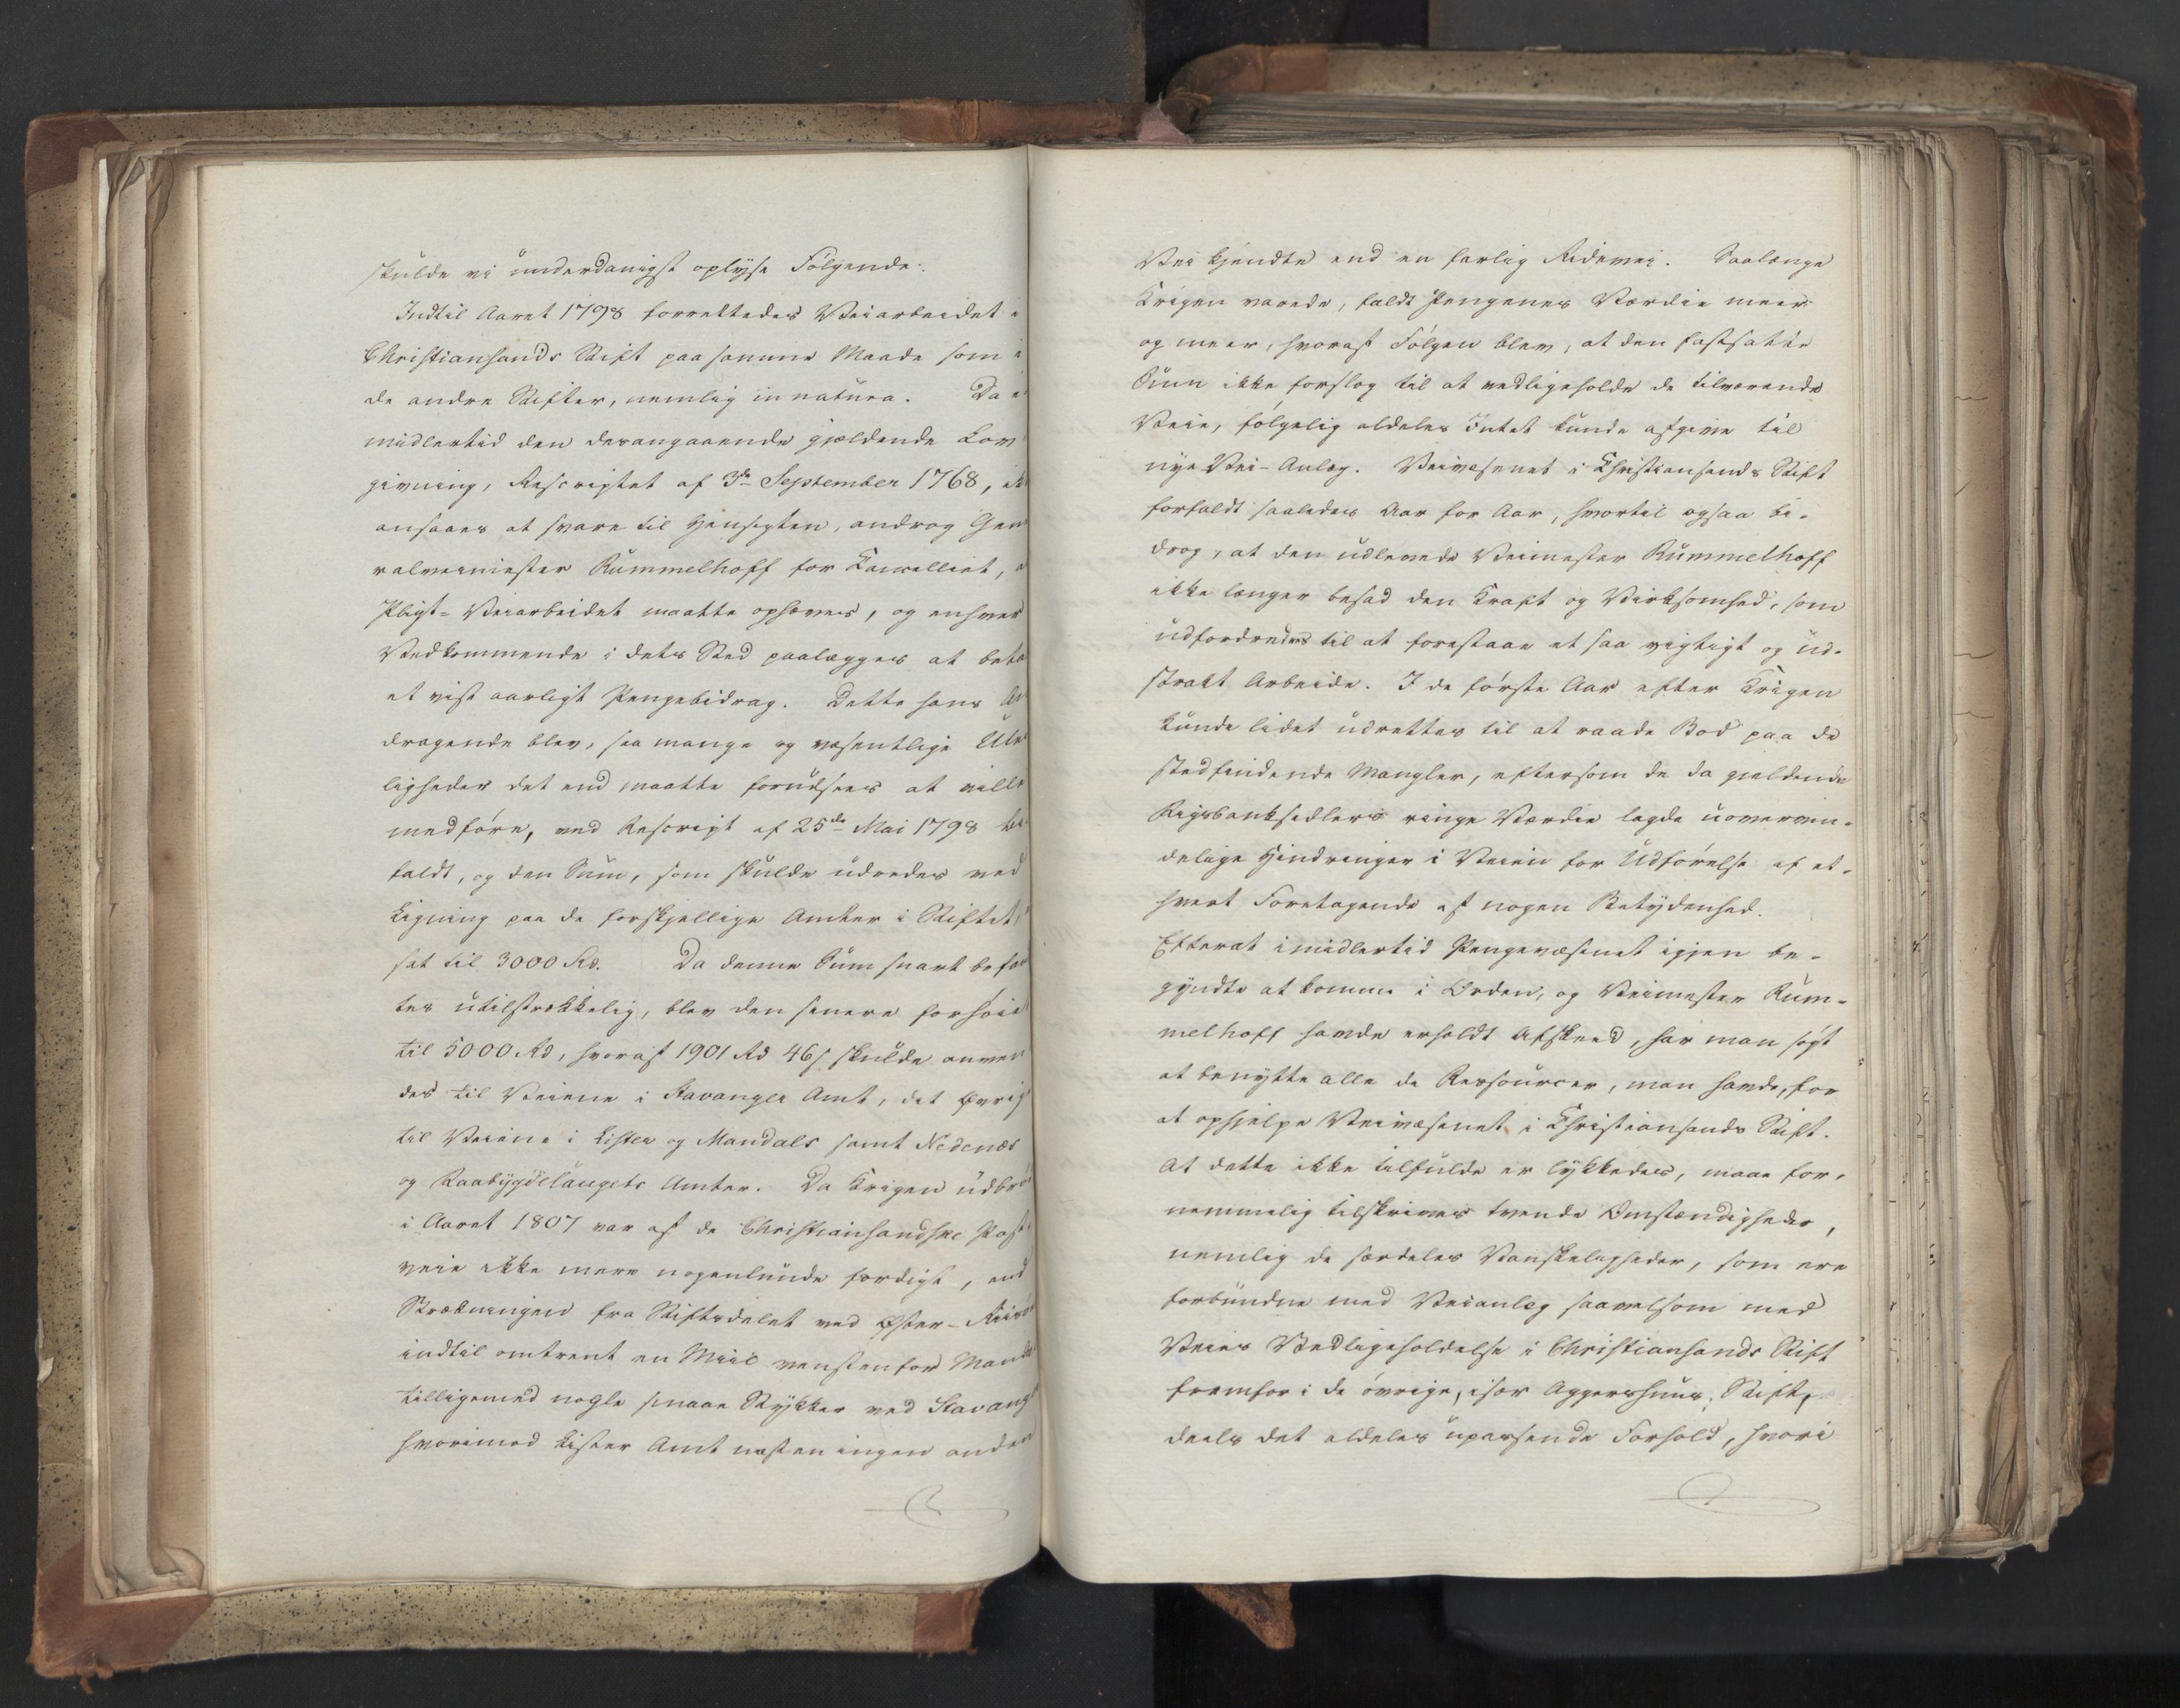 skulde vi underdanigst oplyse Følgende:
Indtil Aaret 1798 forrettedes Veiarbeidet i
Christiansands Stift paa samme Maade som i
de andre Stifter, nemlig in natura. Da i
midlertid den desangaaende gjældende Lov
givning, Rescriptet af 3de September 1768, ik
ansaaes at svare til Hensigten, androg Gen
ralveimester Rummelhoff for Cancelliet, a
Pligt-Veiarbeidet maatte ophæves, og enhver
Vedkommende i dets Sted paalægges at beta
et vist aarligt Pengebidrag. Dette hans An
dragende blev, saa mange og væsentlige Ule
ligheder det end maatte forudsees at ville
medføre, ved Rescript af 25de Mai 1798 bi
faldt, og den Sum, som skulde udredes ved
Ligning paa de forskjellige Amter i Stiftet,
sat til 3000 Rd. Da denne Sum snart befan
tes utilstrækkelig, blev den senere forhøiet
til 5000 Rd, hvoraf 1901 Rd 46 s skulde anven
des til Veiene i Stavanger Amt, det Øvrig
til Veiene i Lister og Mandals samt Nedenæs
og Raabygdelaugets Amter. Da Krigen udbrø
i Aaret 1807 var af de Christiansandske Post
veie ikke mere nogenlunde færdigt, end
Strækningen fra Stiftsdelet ved Øster-Riisø
indtil omtrent en Miil vestenfor Manda
tilligemed nogle smaae Stykker ved Stavang
hvorimod Lister Amt næsten ingen anden
Vei kjendte end en farlig Ridevei. Saalænge
Krigen varede, faldt Pengenes Værdie meer
og meer, hvoraf Følgen blev, at den fastsatte
Sum ikke forslog til at vedligeholde de tilværende
Veie, følgelig aldeles Intet kunde afgive til
nye Vei-Anlæg. Veivæsenet i Christiansands Stift
forfaldt saaledes Aar for Aar, hvortil ogsaa bi-
drog, at den udlevede Veimester Rummelhoff
ikke længer besad den Kraft og Virksomhed, som
udfordredes til at forestaae et saa vigtigt og ud-
strakt Arbeide. I de første Aar efter Krigen
kunde lidet udrettes til at raade Bod paa de
stedfindende Mangler, eftersom de da gjeldende
Rigsbanksedlers ringe Værdie lagde uovervin-
delige Hindringer i Veien for Udførelse af et-
hvert Foretagende af nogen Betydenhed.
Efterat imidlertid Pengevæsenet igjen be-
gyndte at komme i Orden, og Veimester Rum-
melhoff havde erholdt Afskeed, har man søgt
at benytte alle de Ressourcer, man havde, for
at ophjelpe Veivæsenet i Christiansands Stift.
At dette ikke tilfulde er lykkedes, maae for-
nemmelig tilskrives tvende Omstændigheder,
nemlig de særdeles Vanskeligheder, som ere
forbundne med Veianlæg saavelsom med
Veies Vedligeholdelse i Christiansands Stift
fremfor i de øvrige, især Aggershuus, Stift,
deels det aldeles upassende Forhold, hvori